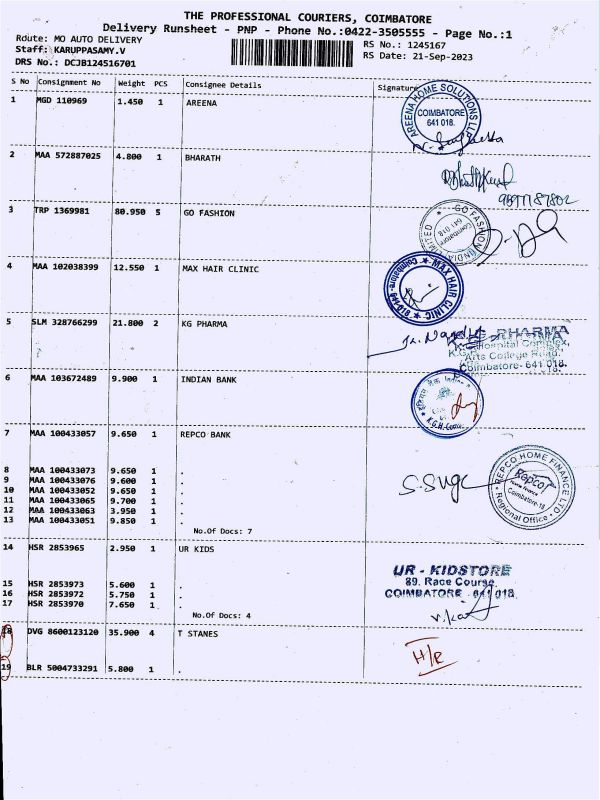 THE PROFESSIONAL COURIERS, COIMBATORE
Delivery Runsheet - PNP - Phone No.:0422-3505555 - Page No.:1
Route: MO AUTO DELIVERY RS No.: 1245167
Staff: KARUPPASAMY.V RS Date: 21-Sep-2023
DRS No.: DCJB124516701
S No Consignment No Weight PCS Consignee Details Signature
1 MGD 110969 1.450 1 AREENA
AREENA HOME SOLUTIONS LLP
COIMBATORE
641 018.
2 MAA 572887025 4.800 1 BHARATH
3 TRP 1369981 80.950 5 GO FASHION
GO FASHION (INDIA) LIMITED
Coimbatore
641 018
4 MAA 102038399 12.550 1 MAX HAIR CLINIC
MAX HAIR CLINIC
Coimbatore-
5 SLM 328766299 21.800 2 KG PHARMA
K.G. PHARMA
K.G. Hospital Complex,
Arts College Road,
Coimbatore- 641 018.
6 MAA 103672489 9.900 1 INDIAN BANK
7 MAA 100433057 9.650 1 REPCO BANK
8 MAA 100433073 9.650 1 .
9 MAA 100433076 9.600 1 .
10 MAA 100433052 9.650 1 .
11 MAA 100433065 9.700 1 .
12 MAA 100433063 3.950 1 .
13 MAA 100433051 9.850 1 .
No.Of Docs: 7
REPCO HOME FINANCE LTD
Repco
Home Finance
Coimbatore-18
Regional Office
14 HSR 2853965 2.950 1 UR KIDS
15 HSR 2853973 5.600 1 .
16 HSR 2853972 5.750 1 .
17 HSR 2853970 7.650 1 .
No.Of Docs: 4
UR - KIDSTORE
89. Race Course,
COIMBATORE - 641 018.
18 DVG 8600123120 35.900 4 T STANES
19 BLR 5004733291 5.800 1 .
H/R